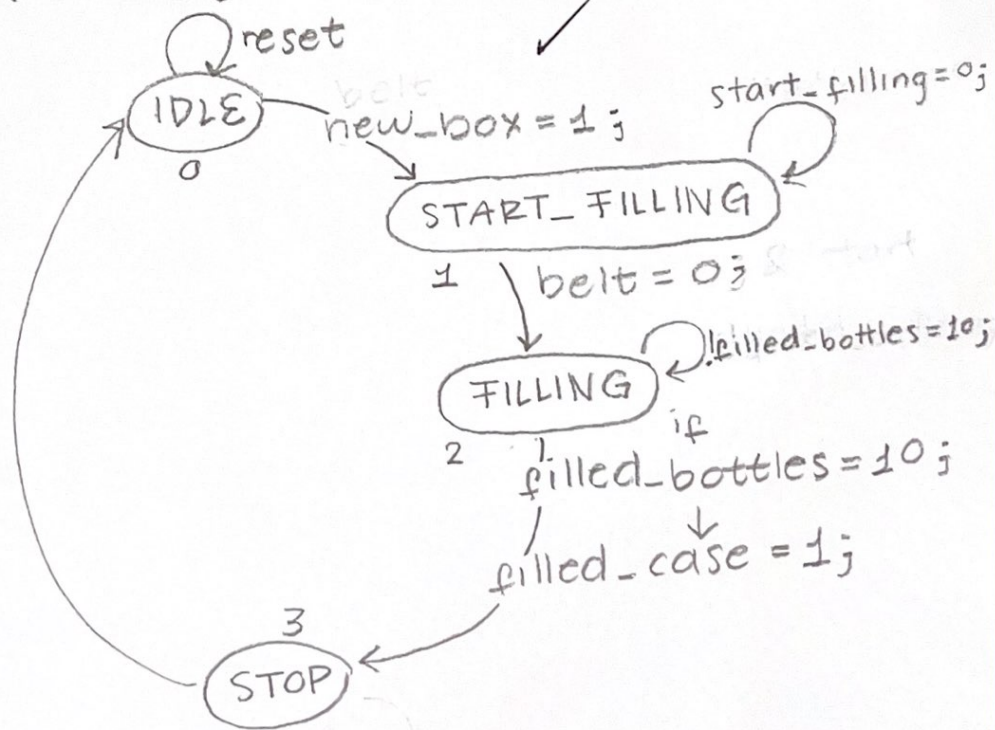 reset
IDLE
0
new_box = 1;
start_filling=0;
START_FILLING
1
belt = 0;
FILLING
!filled_bottles=10;
2
if
filled_bottles=10;
filled_case = 1;
3
STOP